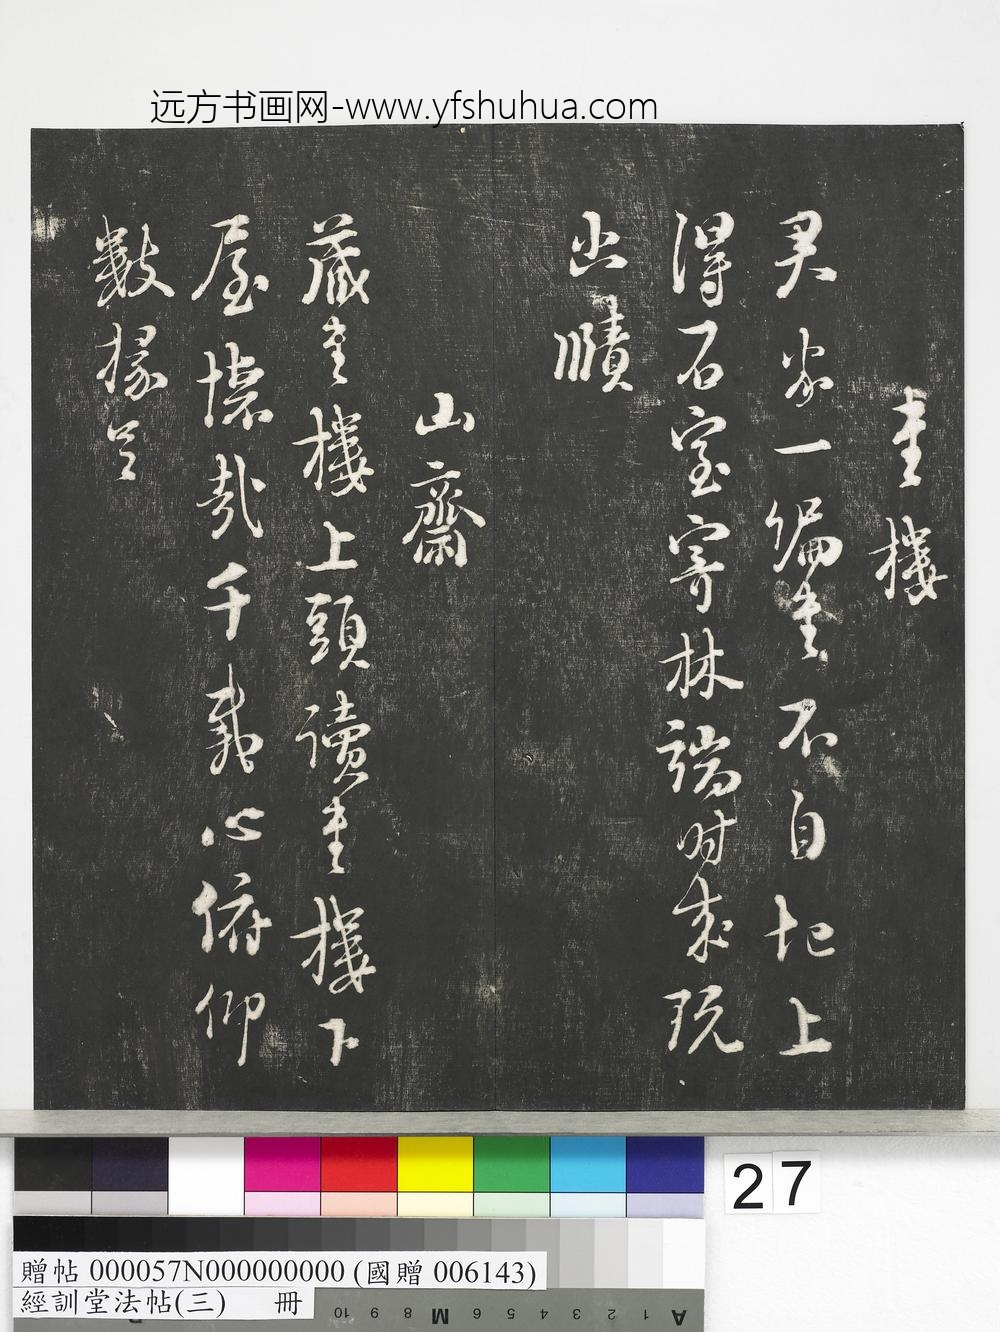 远方书画网-www.yfshuhua.com
書樓
君家一編書不自圯上
得石室寄林端时來玩
幽賾
山齋
藏書樓上頭讀書樓下
屋懷哉千載心俯仰
數椽足
27
贈帖 000057N000000000 (國贈 006143)
經訓堂法帖(三) 冊
A 1 2 3 4 5 6 M 8 9 10